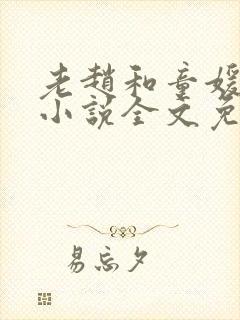 老趙和童媛
小說全文免
易忘夕